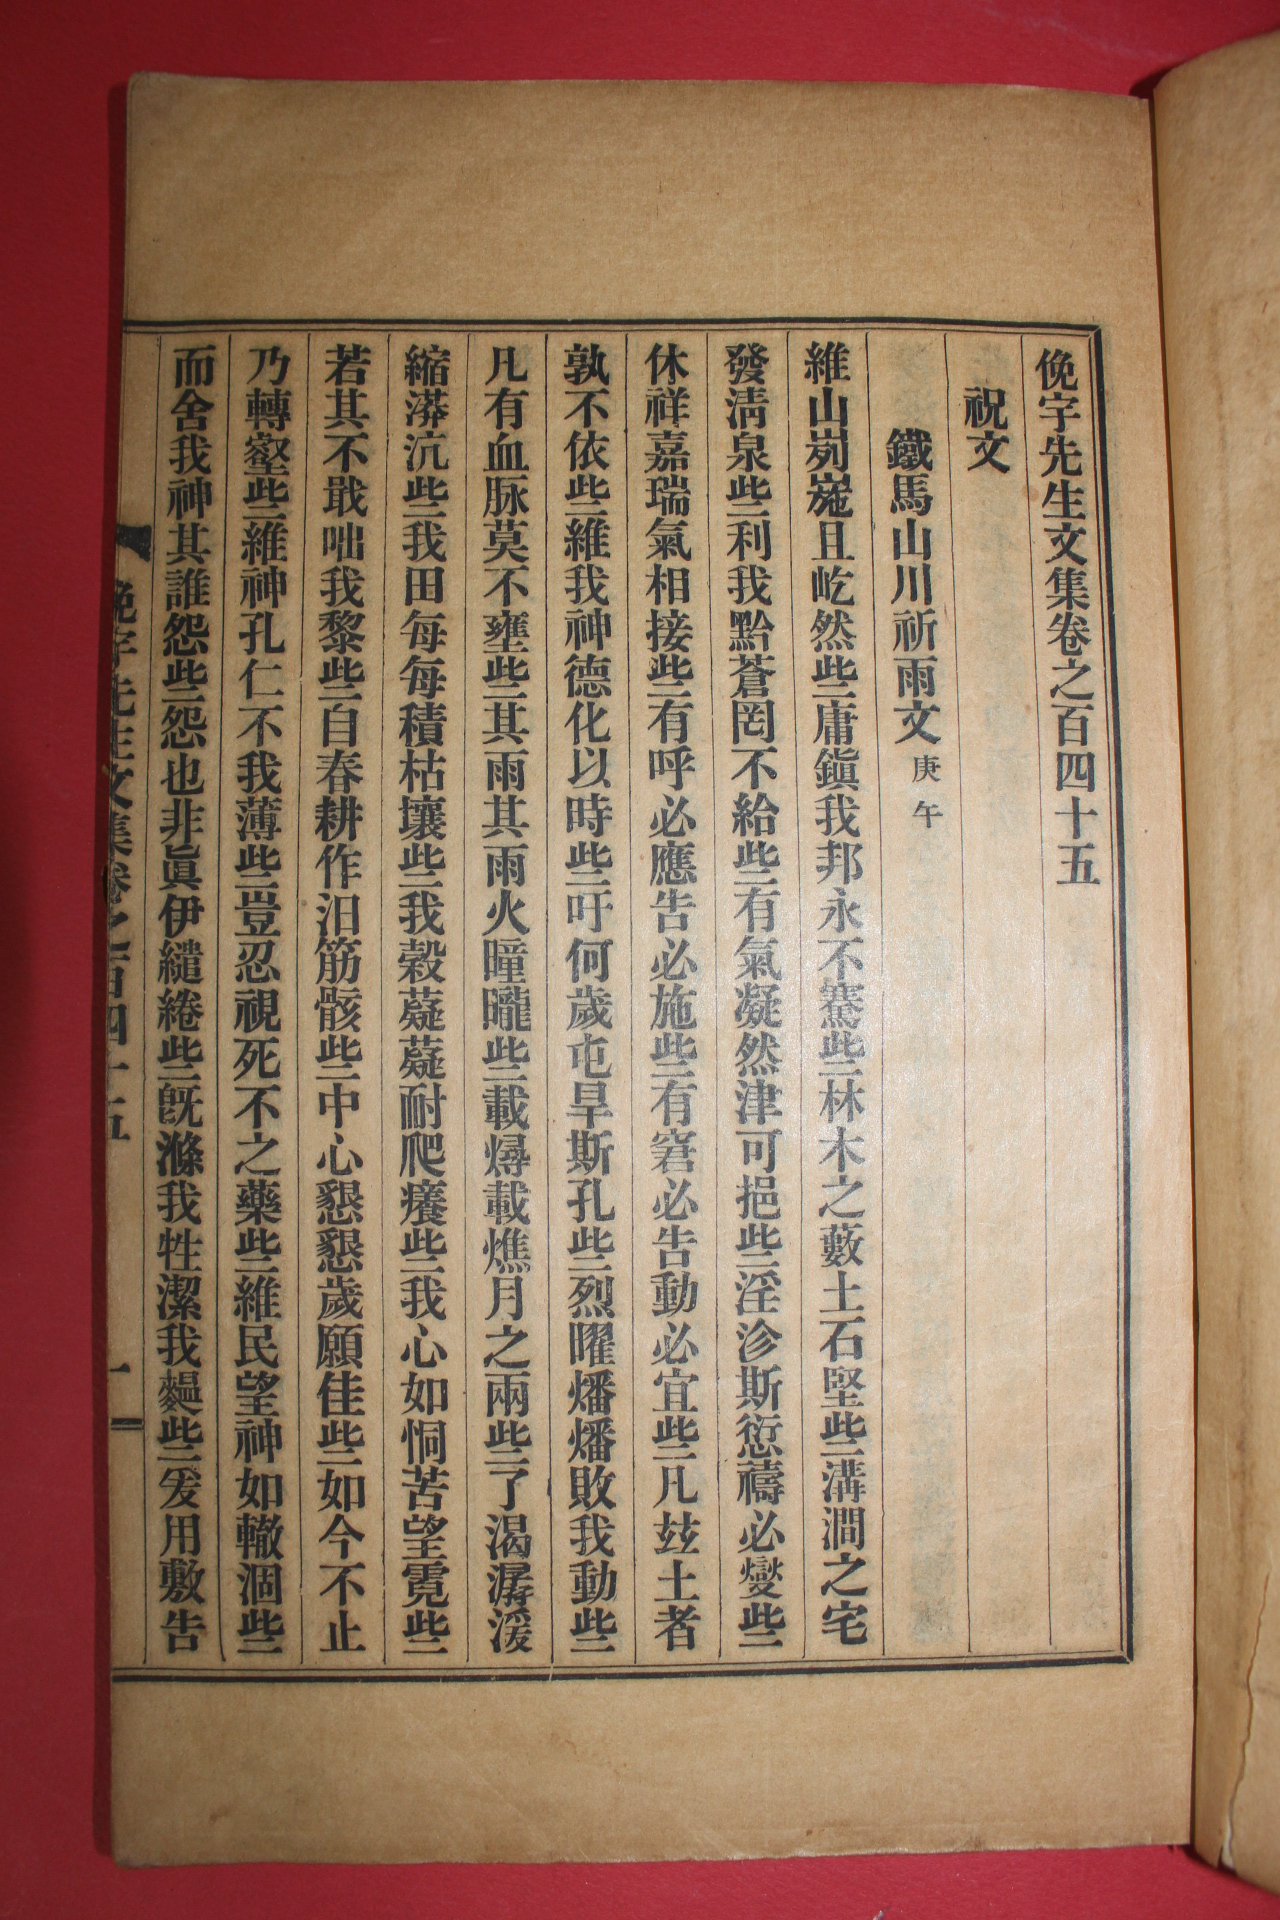 俛宇先生文集卷之百四十五
祝文
鐵馬山川祈雨文 庚午
維山岃嵬且屹然些庸鎭我邦永不騫些林木之藪土石堅些溝澗之宅
發淸泉些利我黔蒼罔不給些有氣凝然津可挹些淫沴斯愆禱必燮些
休祥嘉瑞氣相接些有呼必應告必施些有窘必告動必宜些凡玆土者
孰不依些維我神德化以時些吁何歲屯旱斯孔些烈曜燔燔敗我動些
凡有血脉莫不壅些其雨其雨火曈曨些載燖載燋月之兩些了渴潺湲
縮漭沆些我田每每積枯壤些我穀薿薿耐爬癢些我心如恫苦望霓些
若其不戢咄我黎些自春耕作汨筋骸些中心懇懇歲願佳些如今不止
乃轉壑些維神孔仁不我薄些豈忍視死不之藥些維民望神如轍涸些
而舍我神其誰怨些怨也非眞伊繾綣些旣滌我牲潔我醖些爰用敷告
俛宇先生文集卷之百四十五 一